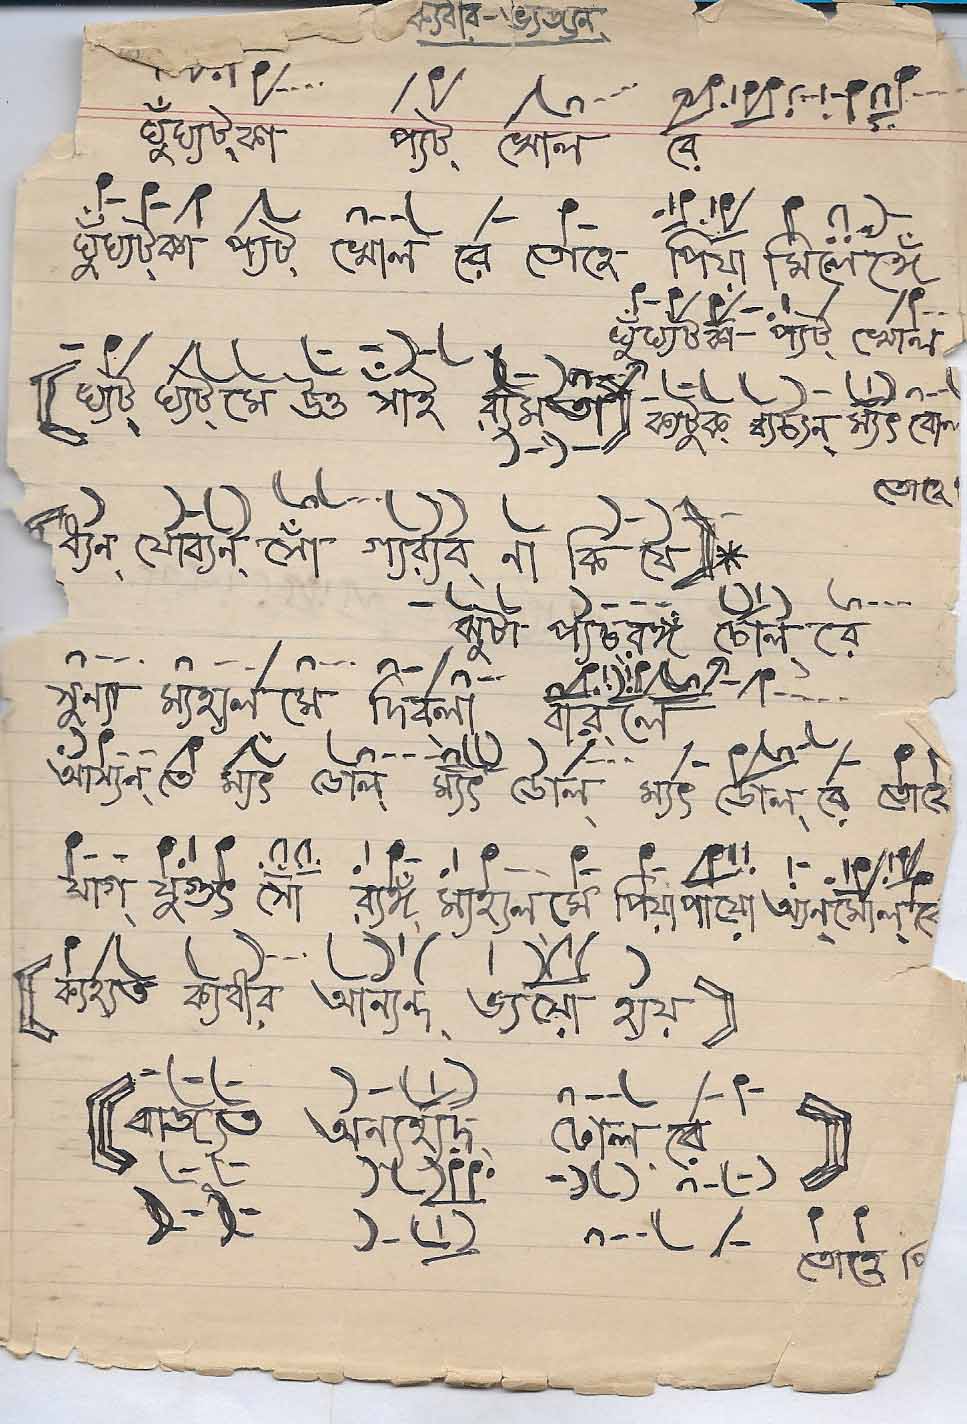 ক্যবীর-ভ্যজ্যন্
ঘুঁঘ্যট্‌কা প্যট্ খোল রে
ঘুঁঘ্যট্‌কা প্যট্ খোল রে তোহে পিয়া মিলেঙ্গে
ঘুঁঘ্যট্‌কা প্যট্ খোল
[ ঘ্যট্ ঘ্যট্‌মে উও সাঁই র‍্যমতা ] ক্যটুক্ ব্যচ্যন্ ম্যৎ বোল
তোহে
যৌব্যন্ সোঁ গ্যর‍্যব্ না কি যৈ ]*
ঝুটা প্যচ্‌রঙ্গ চোল্ রে
সুন্যা ম্যহ্যল মে দিব্‌লা বার্ লে
আস্যন্ তে ম্যৎ ডোল্ ম্যৎ ডোল্ ম্যৎ ডোল্ রে তোহে
যাগ্ যুগুৎ সোঁ র‍্যঙ্গ্ ম্যহ্যল্ মে পিয়া পায়ো অ্যন্‌মোল্ রে
[ ক্যহ্যত ক্যবীর আন্যন্দ্ ভ্যয়ো হ্যয় ]
[ বাজ্যত অন্যহ্যদ্ ঢোল রে ]
তোহে পি